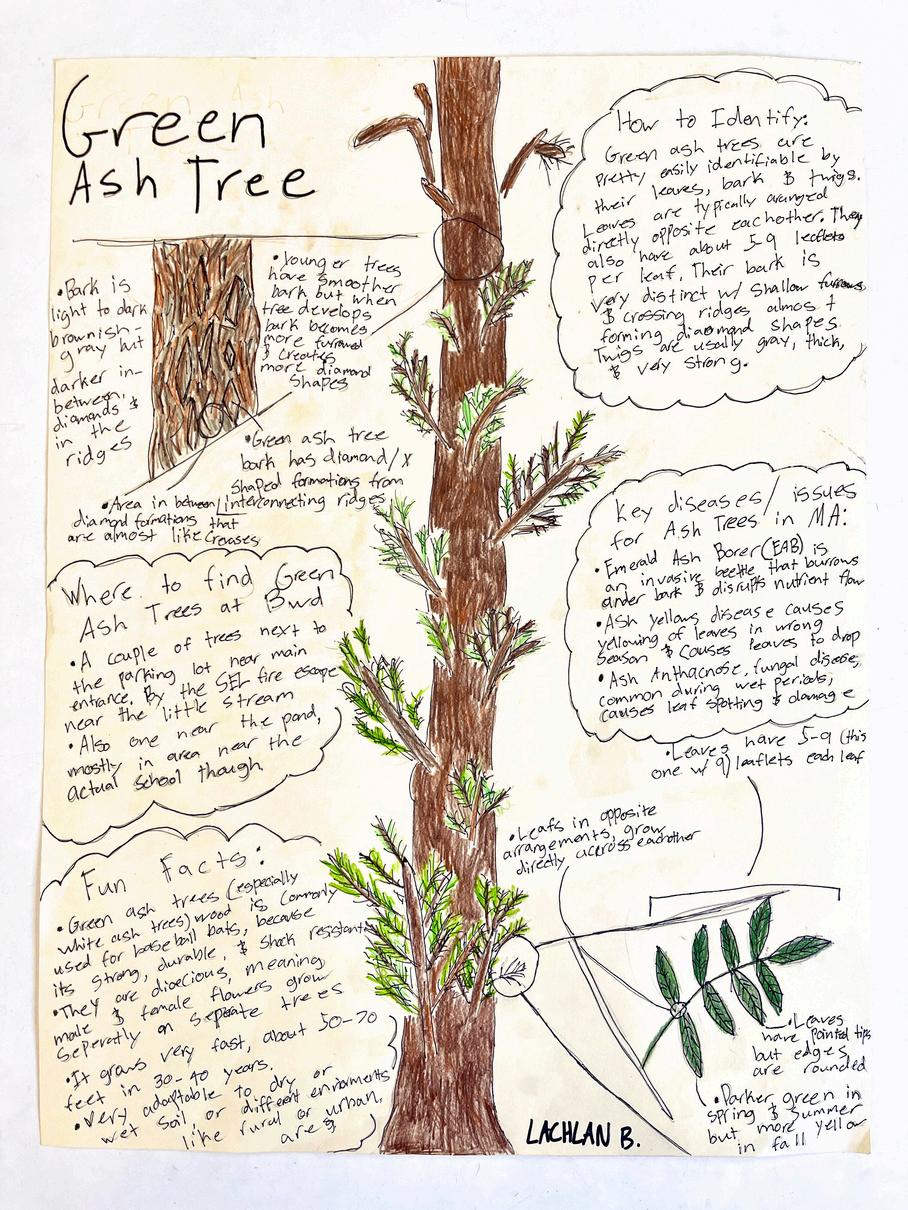 Green
Ash Tree
• Bark is
light to dark
brownish-
gray but
darker in-
between,
diamonds &
in the
ridges
• Younger trees
have smoother
bark but when
tree develops
bark becomes
more furrowed
& creates
more diamond
shapes
• Green ash tree
bark has diamond/X
shaped formations from
interconnecting ridges
• Area in between/
diamond formations that
are almost like creases
How to Identify:
Green ash trees are
pretty easily identifiable by
their leaves, bark & twigs.
Leaves are typically arranged
directly opposite eachother. They
also have about 5-9 leaflets
per leaf. Their bark is
very distinct w/ shallow furrows
& crossing ridges almost
forming diaomand shapes.
Twigs are usually gray, thick,
& very strong.
Key diseases/issues
for Ash Trees in MA:
• Emerald Ash Borer (EAB) is
an invasive beetle that burrows
under bark & disrupts nutrient flow
• Ash yellows disease causes
yellowing of leaves in wrong
season & causes leaves to drop
• Ash Anthacnose, fungal disease,
common during wet periods,
causes leaf spotting & damage
Where to find Green
Ash Trees at Bwd
• A couple of trees next to
the parking lot near main
entrance. By the SEL fire escape
near the little stream
• Also one near the pond,
mostly in area near the
actual school though.
Fun Facts:
• Green ash trees (especially
white ash trees) wood is commonly
used for baseball bats, because
its strong, durable, & shock resistant
• They are dioecious, meaning
male & female flowers grow
seperatly on seperate trees
• It grows very fast, about 50-70
feet in 30-40 years.
• Very adaptable to dry or
wet soil, or different enviroments
like rural or urban,
areas
• Leaves have 5-9 (this
one w/ 9) leaflets each leaf
• Leafs in opposite
arrangements, grow
directly accross eachother
• Leaves
have pointed tips
but edges
are rounded
• Darker green in
spring & summer
but more yellow
in fall
LACHLAN B.